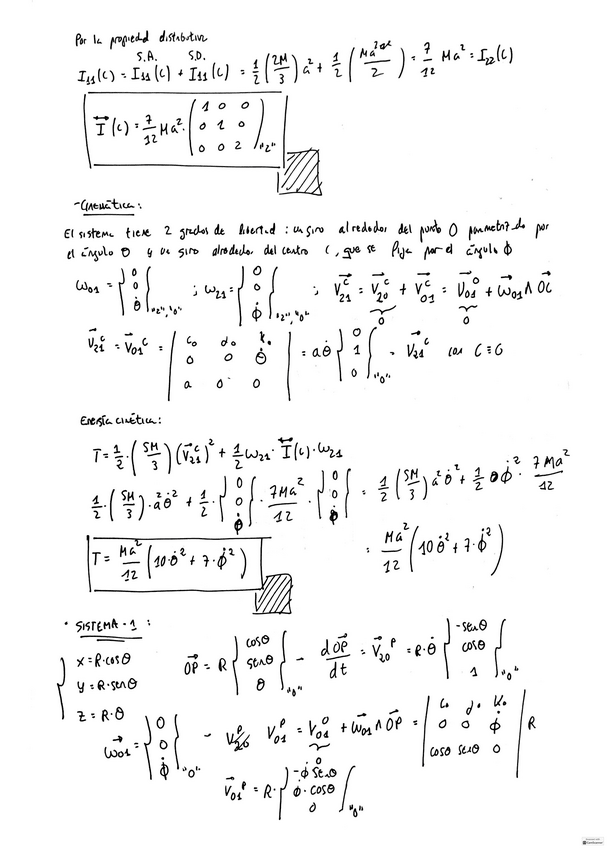 Por la propiedad distributiva
S.A. S.D.
I₁₁(C) = I₁₁(C) + I₁₁(C) = 1/2 (2M/3) a² + 1/2 (Ma²/2) = 7/12 Ma² = I₂₂(C)
I(C) = 7/12 Ma² · (1 0 0
0 1 0
0 0 2)"2"
- Cinemática:
El sistema tiene 2 grados de libertad: un giro alrededor del punto O parametrizado por
el ángulo θ y un giro alrededor del centro C, que se fija por el ángulo ϕ
ω₀₁ = {0 0 θ̇}"2","0" ; ω₂₁ = {0 0 ϕ̇}"2","0" ; V₂₁ᶜ = V₂₀ᶜ + V₀₁ᶜ = V₀₁ᴼ + ω₀₁ ∧ OC
0 0
V₂₁ᶜ = V₀₁ᶜ = | i₀ j₀ k₀
0 0 θ̇
a 0 0 | = aθ̇ {0 1 0}"0" = V₂₁ᶜ con C ≡ G
Energía cinética:
T = 1/2 · (5M/3) (V₂₁ᶜ)² + 1/2 ω₂₁ · I(C) · ω₂₁
1/2 · (5M/3) · a²θ̇² + 1/2 · {0 0 ϕ̇} · 7Ma²/12 · {0 0 ϕ̇} = 1/2 (5M/3) a²θ̇² + 1/2 ϕ̇² · 7Ma²/12
T = Ma²/12 (10·θ̇² + 7·ϕ̇²)
= Ma²/12 (10θ̇² + 7·ϕ̇²)
· SISTEMA-1:
x = R·cosθ
y = R·senθ
z = R·θ
OP = R {cosθ senθ θ}"0" - dOP/dt = V₂₀ᴾ = R·θ̇ {-senθ cosθ 1}"0"
ω₀₁ = {0 0 ϕ̇}"0" - V₀₁ᴾ = V₀₁ᴼ + ω₀₁ ∧ OP = | i₀ j₀ k₀
0
0 0 ϕ̇
cosθ senθ 0 | R
V₀₁ᴾ = R· {-ϕ̇ senθ ϕ̇·cosθ 0}"0"